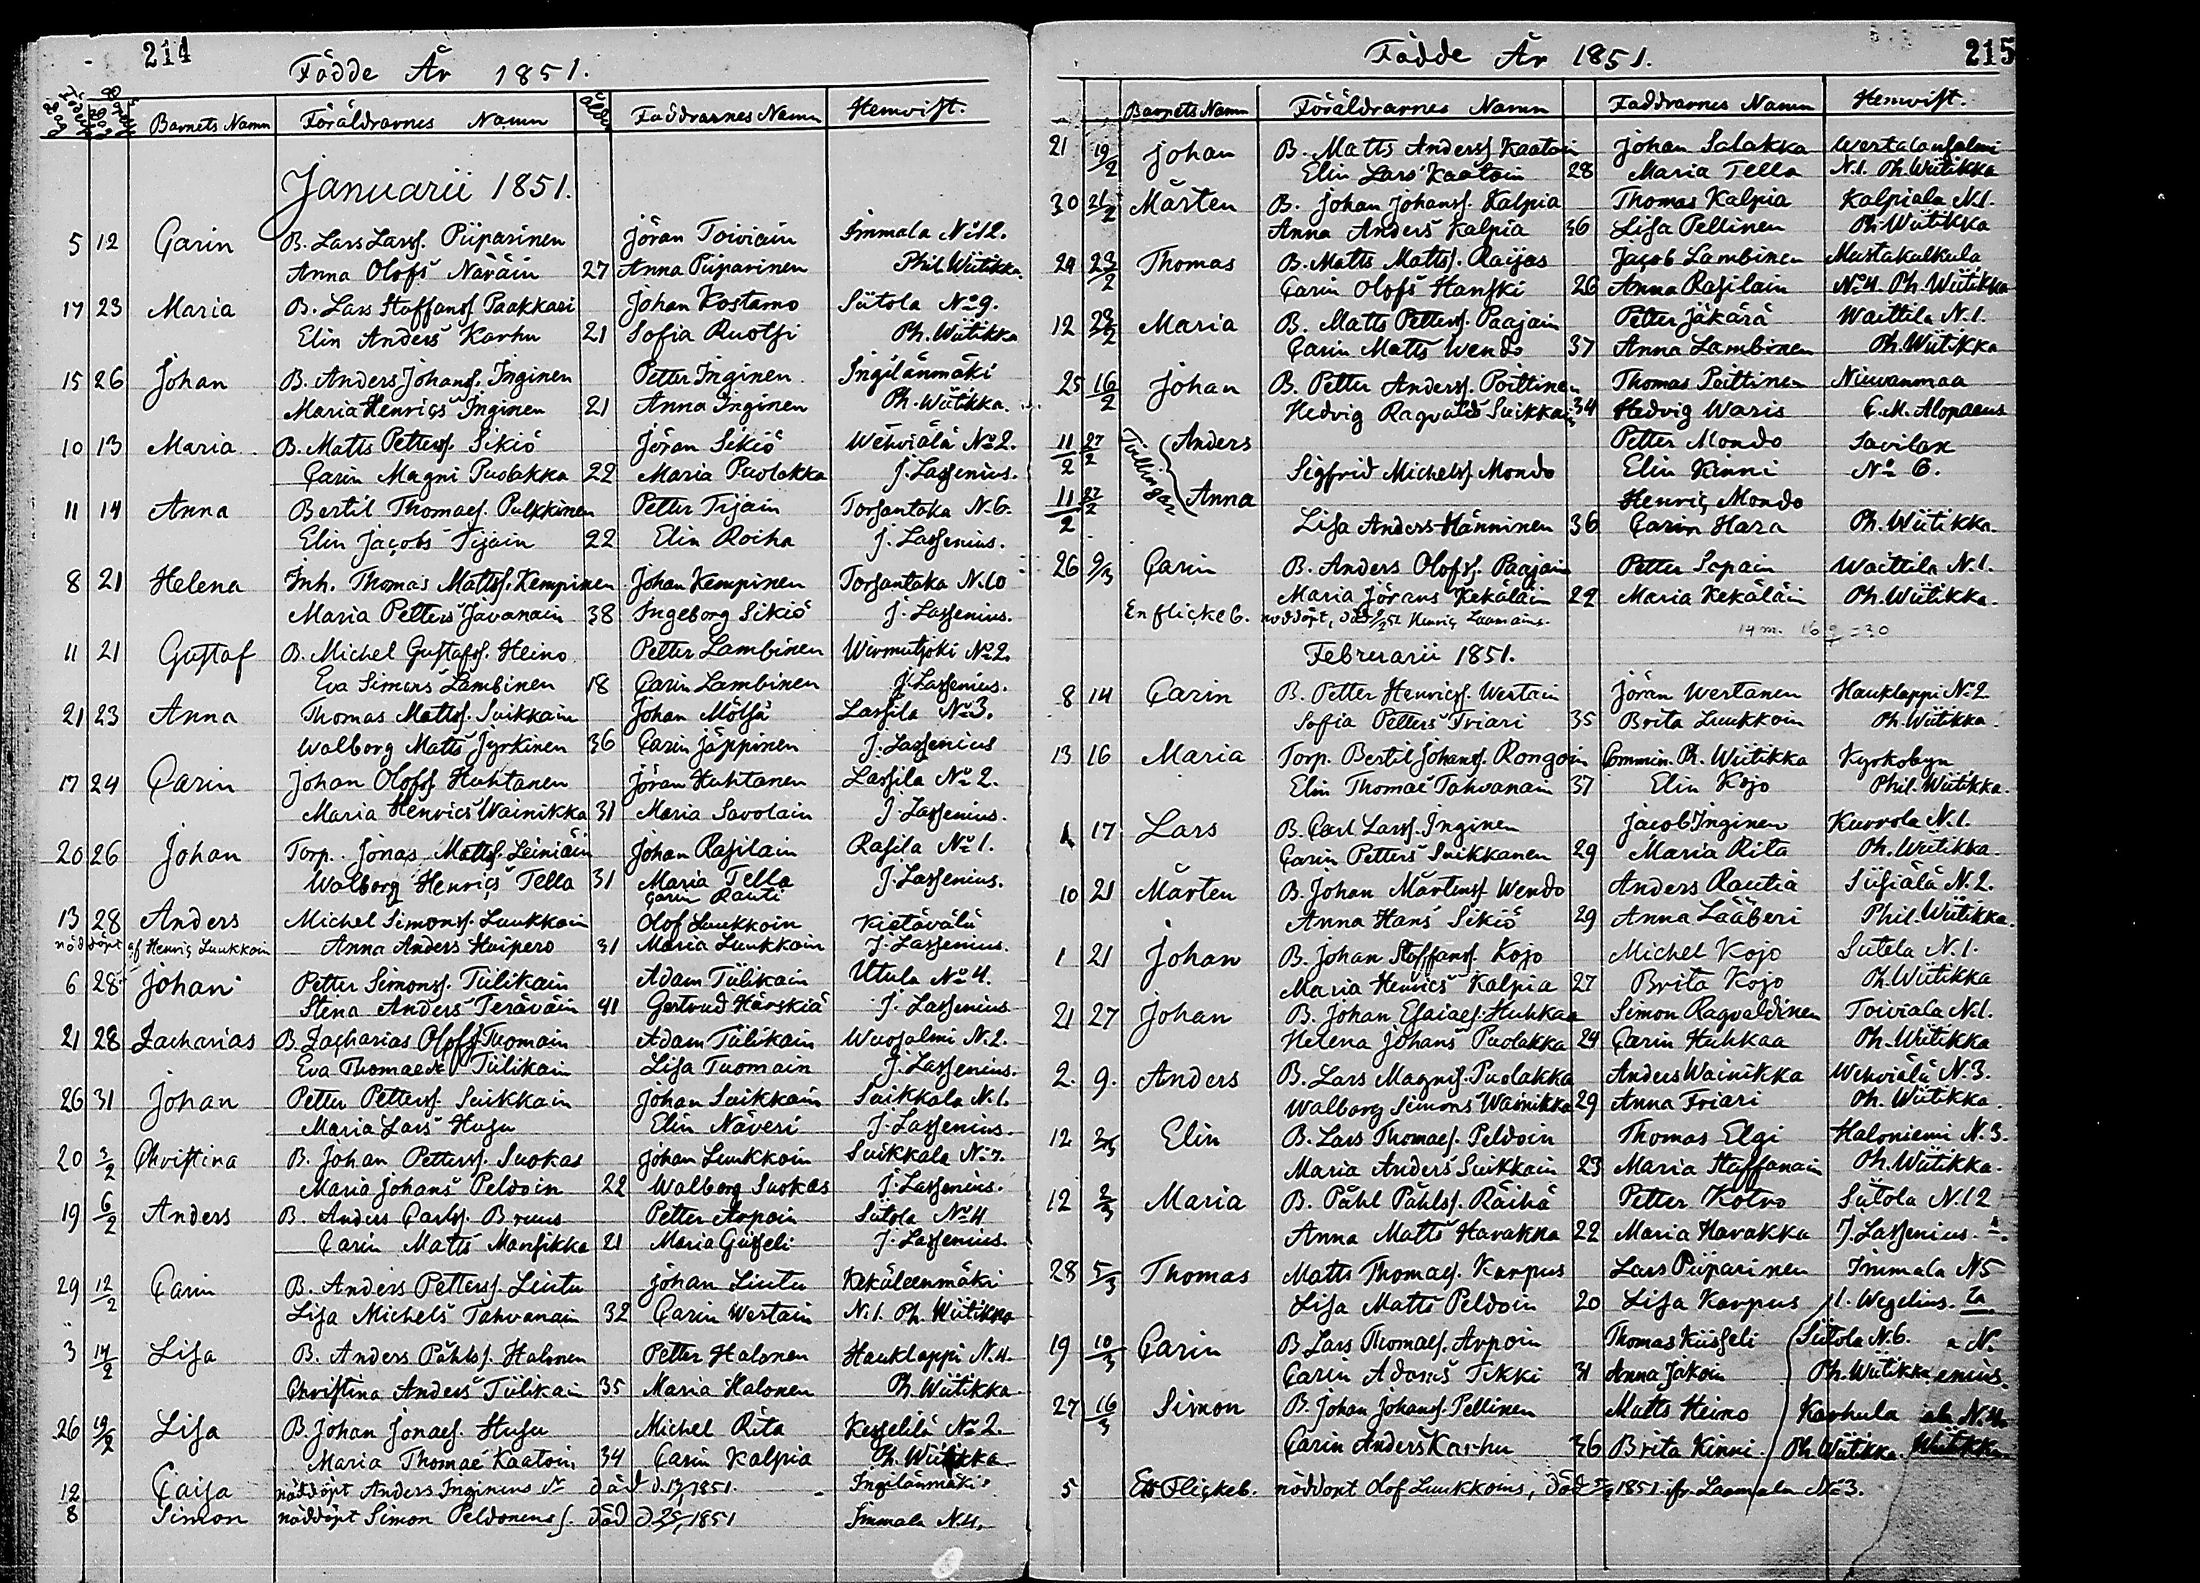 214
Födde År 1851.
Barnets Namn Föräldrarnes Namn Ålder Faddrarnes Namn Hemvist.
Januarii 1851.
5 12 Carin B. Lars Larss. Piiparinen Jöran Toiviain Immala No 12.
Anna Olofs Näräin 27 Anna Piiparinen Phil. Wiitikka.
17 23 Maria B. Lars Staffanss. Paakkari Johan Kostamo Siitola No 9.
Elin Anders Karhu 21 Sofia Ruotsi Ph. Wiitikka
15 26 Johan B. Anders Johanss. Inginen Petter Inginen Ingilänmäki
Maria Henrics Inginen 21 Anna Inginen Ph. Wiitikka.
10 13 Maria B. Matts Petterss. Sikiö Jöran Sikiö Wehviälä No 2.
Carin Magni Puolakka 22 Maria Puolakka J. Lassenius.
11 14 Anna Bertil Thomaes. Pulkkinen Petter Tijain Torsantaka N. 6.
Elin Jacobs Tijain 22 Elin Roiha J. Lassenius.
8 21 Helena Inh. Thomas Mattss. Kempinen Johan Kempinen Torsantaka N. 10
Maria Petters Javanain 38 Ingeborg Sikiö J. Lassenius.
11 21 Gustaf B. Michel Gustafs. Heino Petter Lambinen Wirmutjoki No 2.
Eva Simons Lambinen 18 Carin Lambinen J. Lassenius.
21 23 Anna Thomas Mattss. Suikkain Johan Mölsä Lassila No 3.
Walborg Matts Jyrkinen 36 Carin Jäppinen J. Lassenius
17 24 Carin Johan Olofss Huhtanen Jöran Huhtanen Lassila No 2.
Maria Henrics Wainikka 31 Maria Savolain J. Lassenius.
20 26 Johan Torp. Jonas Mattss. Leiniäin Johan Rasilain Rasila No 1.
Walborg Henrics Tella 31 Maria Tella J. Lassenius.
Carin Rauti
13 28 Anders Michel Simonss. Luukkain Olof Luukkoin Kietävälä
nöddöpt af Henric Luukkoin Anna Anders Huipero 31 Maria Luukkain J. Lassenius.
6 28 Johan Petter Simonss. Tiilikain Adam Tiilikain Utula No 4.
Stina Anders Teräväin 41 Gertrud Härskiä J. Lassenius
21 28 Zacharias B. Zacharias Olofss Tuomain Adam Tiilikain Wuosalmi N. 2.
Eva Thomae Tiilikain Lisa Tuomain J. Lassenius.
26 31 Johan Petter Petterss Suikkain Johan Suikkain Suikkala N. 1.
Maria Lars Husu Elin Näveri J. Lassenius.
20 3/2 Christina B. Johan Petterss. Suokas Johan Luukkoin Suikkala N. 7.
Maria Johans Peldoin 22 Walborg Suokas J. Lassenius.
19 6/2 Anders B. Anders Carlss. Bruus Petter Arpoin Siitola No 4
Carin Matts Mansikka 21 Maria Giisseli J. Lassenius.
29 12/2 Carin B. Anders Petterss. Liutu Johan Liutu Kekäleenmäki
Lisa Michels Tahvanain 32 Carin Wertain N. 1. Ph. Wiitikka
3 14/2 Lisa B. Anders Påhlss. Halonen Petter Halonen Hauklappi N. 4.
Christina Anders Tiilikai 35 Maria Halonen Ph. Wiitikka
26 19/2 Lisa B. Johan Jonaes. Husu Michel Rita Kesselilä No 2.
Maria Thomae Kaatoin 34 Carin Kalpia Ph. Wiitikka
12 Caisa nöddöpt Anders Inginens död d. 1851. Ingilänmäki
8 Simon nöddöpt Simon Peldonens s. död d. 25/1 1851 Immala N. 4.
215
Födde År 1851.
Barnets Namn Föräldrarnes Namn Faddrarnes Namn Hemvist.
21 19/2 Johan B. Matts Anderss Kaatoin Johan Salakka Wertalansalmi
Elin Lars Kaatoin 28 Maria Tella N. 1. Ph. Wiitikka
30 21/2 Mårten B. Johan Johanss. Kalpia Thomas Kalpia Kalpiala N. 1.
Anna Anders Kalpia 36 Lisa Pellinen Ph. Wiitikka
29 23/2 Thomas B. Matts Mattss. Raijas Jacob Lambinen Mustakulkula
Carin Olofs Hanski 26 Anna Rasilain No 4. Ph. Wiitikka
12 23/2 Maria B. Matts Petterss. Paajain Petter Jäkärä Waittila N. 1.
Carin Matts Wendo 37 Anna Lambinen Ph. Wiitikka
25 16/2 Johan B. Petter Anderss. Poittinen Thomas Poittinen Niuvanmaa
Hedvig Ragvalds Suikkai 34 Hedvig Waris C. M. Alopaeus
11/2 27/2 Tvillingar Anders Petter Mondo Savilax
Sigfrid Michelss Mondo Elin Kinni No 6.
11/2 27/2 Anna Henric Mondo
Lisa Anders Hänninen 36 Carin Hara Ph. Wiitikka.
26 9/3 Carin B. Anders Olofss. Paajain Petter Sopain Waittila N. 1.
Maria Jörans Kekäläin 22 Maria Kekäläin Ph. Wiitikka.
En flicke b. nöddöpt, död Henric Laamains.
14 m. 16 = 30
Februarii 1851.
8 14 Carin B. Petter Henricss. Wertain Jöran Wertanen Hauklappi No 2
Sofia Petters Friari 35 Brita Luukkoin Ph. Wiitikka.
13 16 Maria Torp. Bertil Johanss. Rongoin Commin. Ph. Wiitikka Kyrkobyn
Elin Thomae Tahvanain 37 Elin Kojo Phil. Wiitikka.
17 Lars B. Carl Larss. Inginen Jacob Inginen Kurrola N. 1.
Carin Petters Suikkanen 29 Maria Rita Ph. Wiitikka.
10 21 Mårten B. Johan Mårtenss Wendo Anders Rautia Siisiälä N. 2.
Anna Hans Sikiö 29 Anna Lääberi Phil. Wiitikka.
1 21 Johan B. Johan Staffanss. Kojo Michel Kojo Sutela N. 1.
Maria Henrics Kalpia 27 Brita Kojo Ph. Wiitikka
21 27 Johan B. Johan Esaiaes. Huhkaa Simon Ragvaldinen Toiviala N. 1.
Helena Johans Puolakka 24 Carin Huhkaa Ph. Wiitikka
2. 9. Anders B. Lars Magnis. Puolakka Anders Wainikka Wehviälä N. 3.
Walborg Simons Wainikka 29 Anna Friari Ph. Wiitikka.
12 2/3 Elin B. Lars Thomaes. Peldoin Thomas Elgi Haloniemi N. 3.
Maria Anders Suikkain 23 Maria Staffanain Ph. Wiitikka.
12 2/3 Maria B. Påhl Påhlss. Räihä Petter Kotro Siitola N. 12
Anna Matts Havakka 22 Maria Havakka J. Lassenius.
28 5/3 Thomas Matts Thomaes. Karpus Lars Piiparinen Immala N 5
Lisa Matts Peldoin 20 Lisa Karpus Wegelius.
19 10/3 Carin B Lars Thomaes. Arpoin Thomas Kiisseli Siitola N. 6.
Carin Adams Ikki 31 Anna Jakoin Ph. Wiitikka enius.
27 16/3 Simon B. Johan Johanss. Pellinen Matts Heino Karhula
Carin Anders Karhu 36 Brita Kinni Ph. Wiitikka. Wiitikka
5 Ett Flickeb. nöddöpt Olof Luukkoins, död 1851. ifr. Laamala No 3.